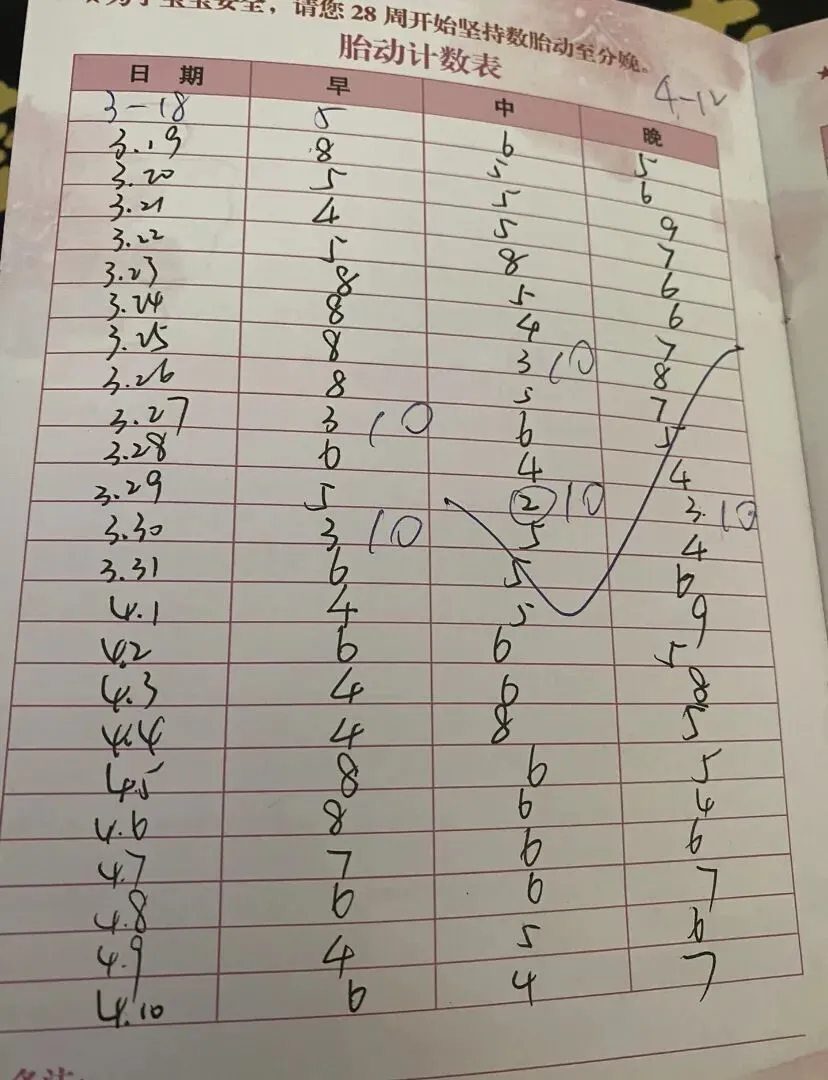 为了宝宝安全，请您28周开始坚持数胎动至分娩。
胎动计数表
4-12
日 期 早 中 晚
3-18 5 6 5
3.19 8 5 6
3.20 5 5 9
3.21 4 5 7
3.22 5 8 6
3.23 8 5 6
3.24 8 4 7
3.25 8 3 10 8
3.26 8 5 7
3.27 3 10 6 5
3.28 6 4 4
3.29 5 2 10 3. 10
3.30 3 10 5 4
3.31 6 5 6
4.1 4 5 9
4.2 6 6 5
4.3 4 6 8
4.4 4 8 5
4.5 8 6 5
4.6 8 6 4
4.7 7 6 6
4.8 6 6 7
4.9 4 5 6
4.10 6 4 7